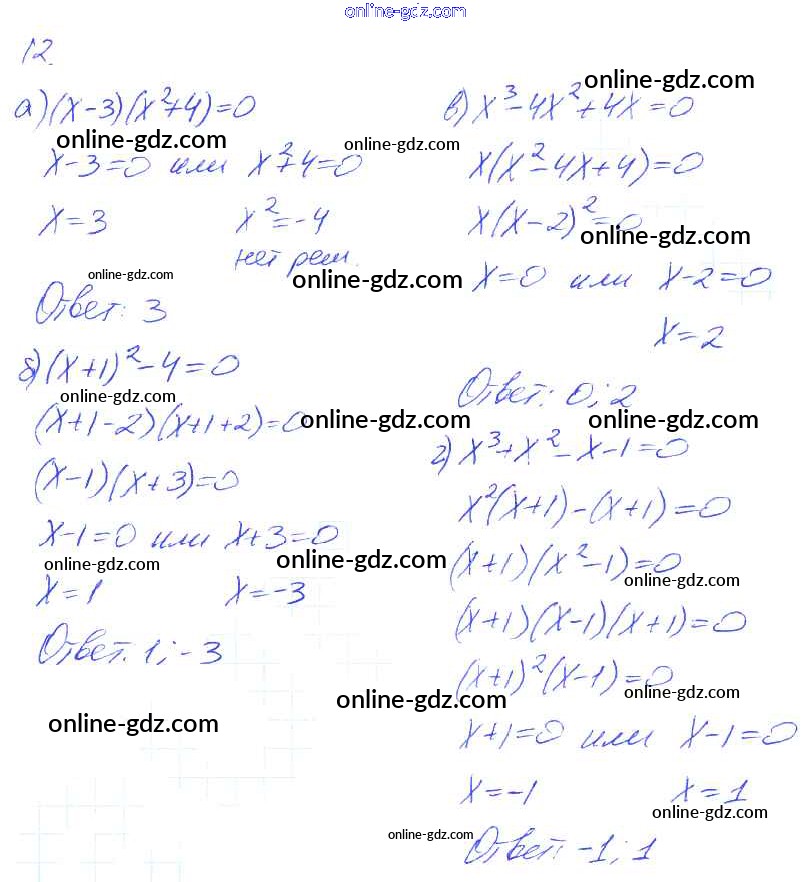 online-gdz.com
12.
а) (x-3)(x²+4)=0
online-gdz.com
x-3=0 или x²+4=0
x=3 x²=-4
нет реш.
online-gdz.com
Ответ: 3
б) (x+1)²-4=0
online-gdz.com
(x+1-2)(x+1+2)=0
(x-1)(x+3)=0
x-1=0 или x+3=0
online-gdz.com
x=1 x=-3
Ответ: 1; -3
online-gdz.com
online-gdz.com
в) x³-4x²+4x=0
online-gdz.com
x(x²-4x+4)=0
x(x-2)²=0
online-gdz.com
online-gdz.com
x=0 или x-2=0
x=2
online-gdz.com
Ответ: 0; 2
online-gdz.com
online-gdz.com
г) x³+x²-x-1=0
x²(x+1)-(x+1)=0
(x+1)(x²-1)=0
online-gdz.com
online-gdz.com
(x+1)(x-1)(x+1)=0
(x+1)²(x-1)=0
online-gdz.com
online-gdz.com
x+1=0 или x-1=0
x=-1 x=1
online-gdz.com
online-gdz.com
Ответ: -1; 1